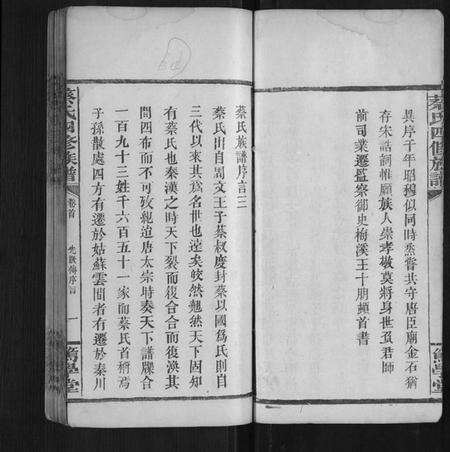 具序千年昭穆似同時烝嘗共守唐臣廟金石猶
存宋誥詞惟願族人崇孝敬莫將身世負君師
前司業遷監察御史梅溪王十朋頓首書
蔡氏四修族譜
篤學堂
蔡氏族譜序言三
蔡氏出自周文王子蔡叔度封蔡以國為氏則自
三代以來其為名世也遠矣皎然翹然天下固知
有蔡氏也秦漢之時天下裂而復合合而復渙其
間四布而不可攷稽迨唐太宗時奏天下譜牒合
一百九十三姓千六百五十一家而蔡氏首稱焉
子孫散處四方有遷於姑蘇雲間者有遷於秦川
蔡氏四修族譜
卷首
一
篤學堂